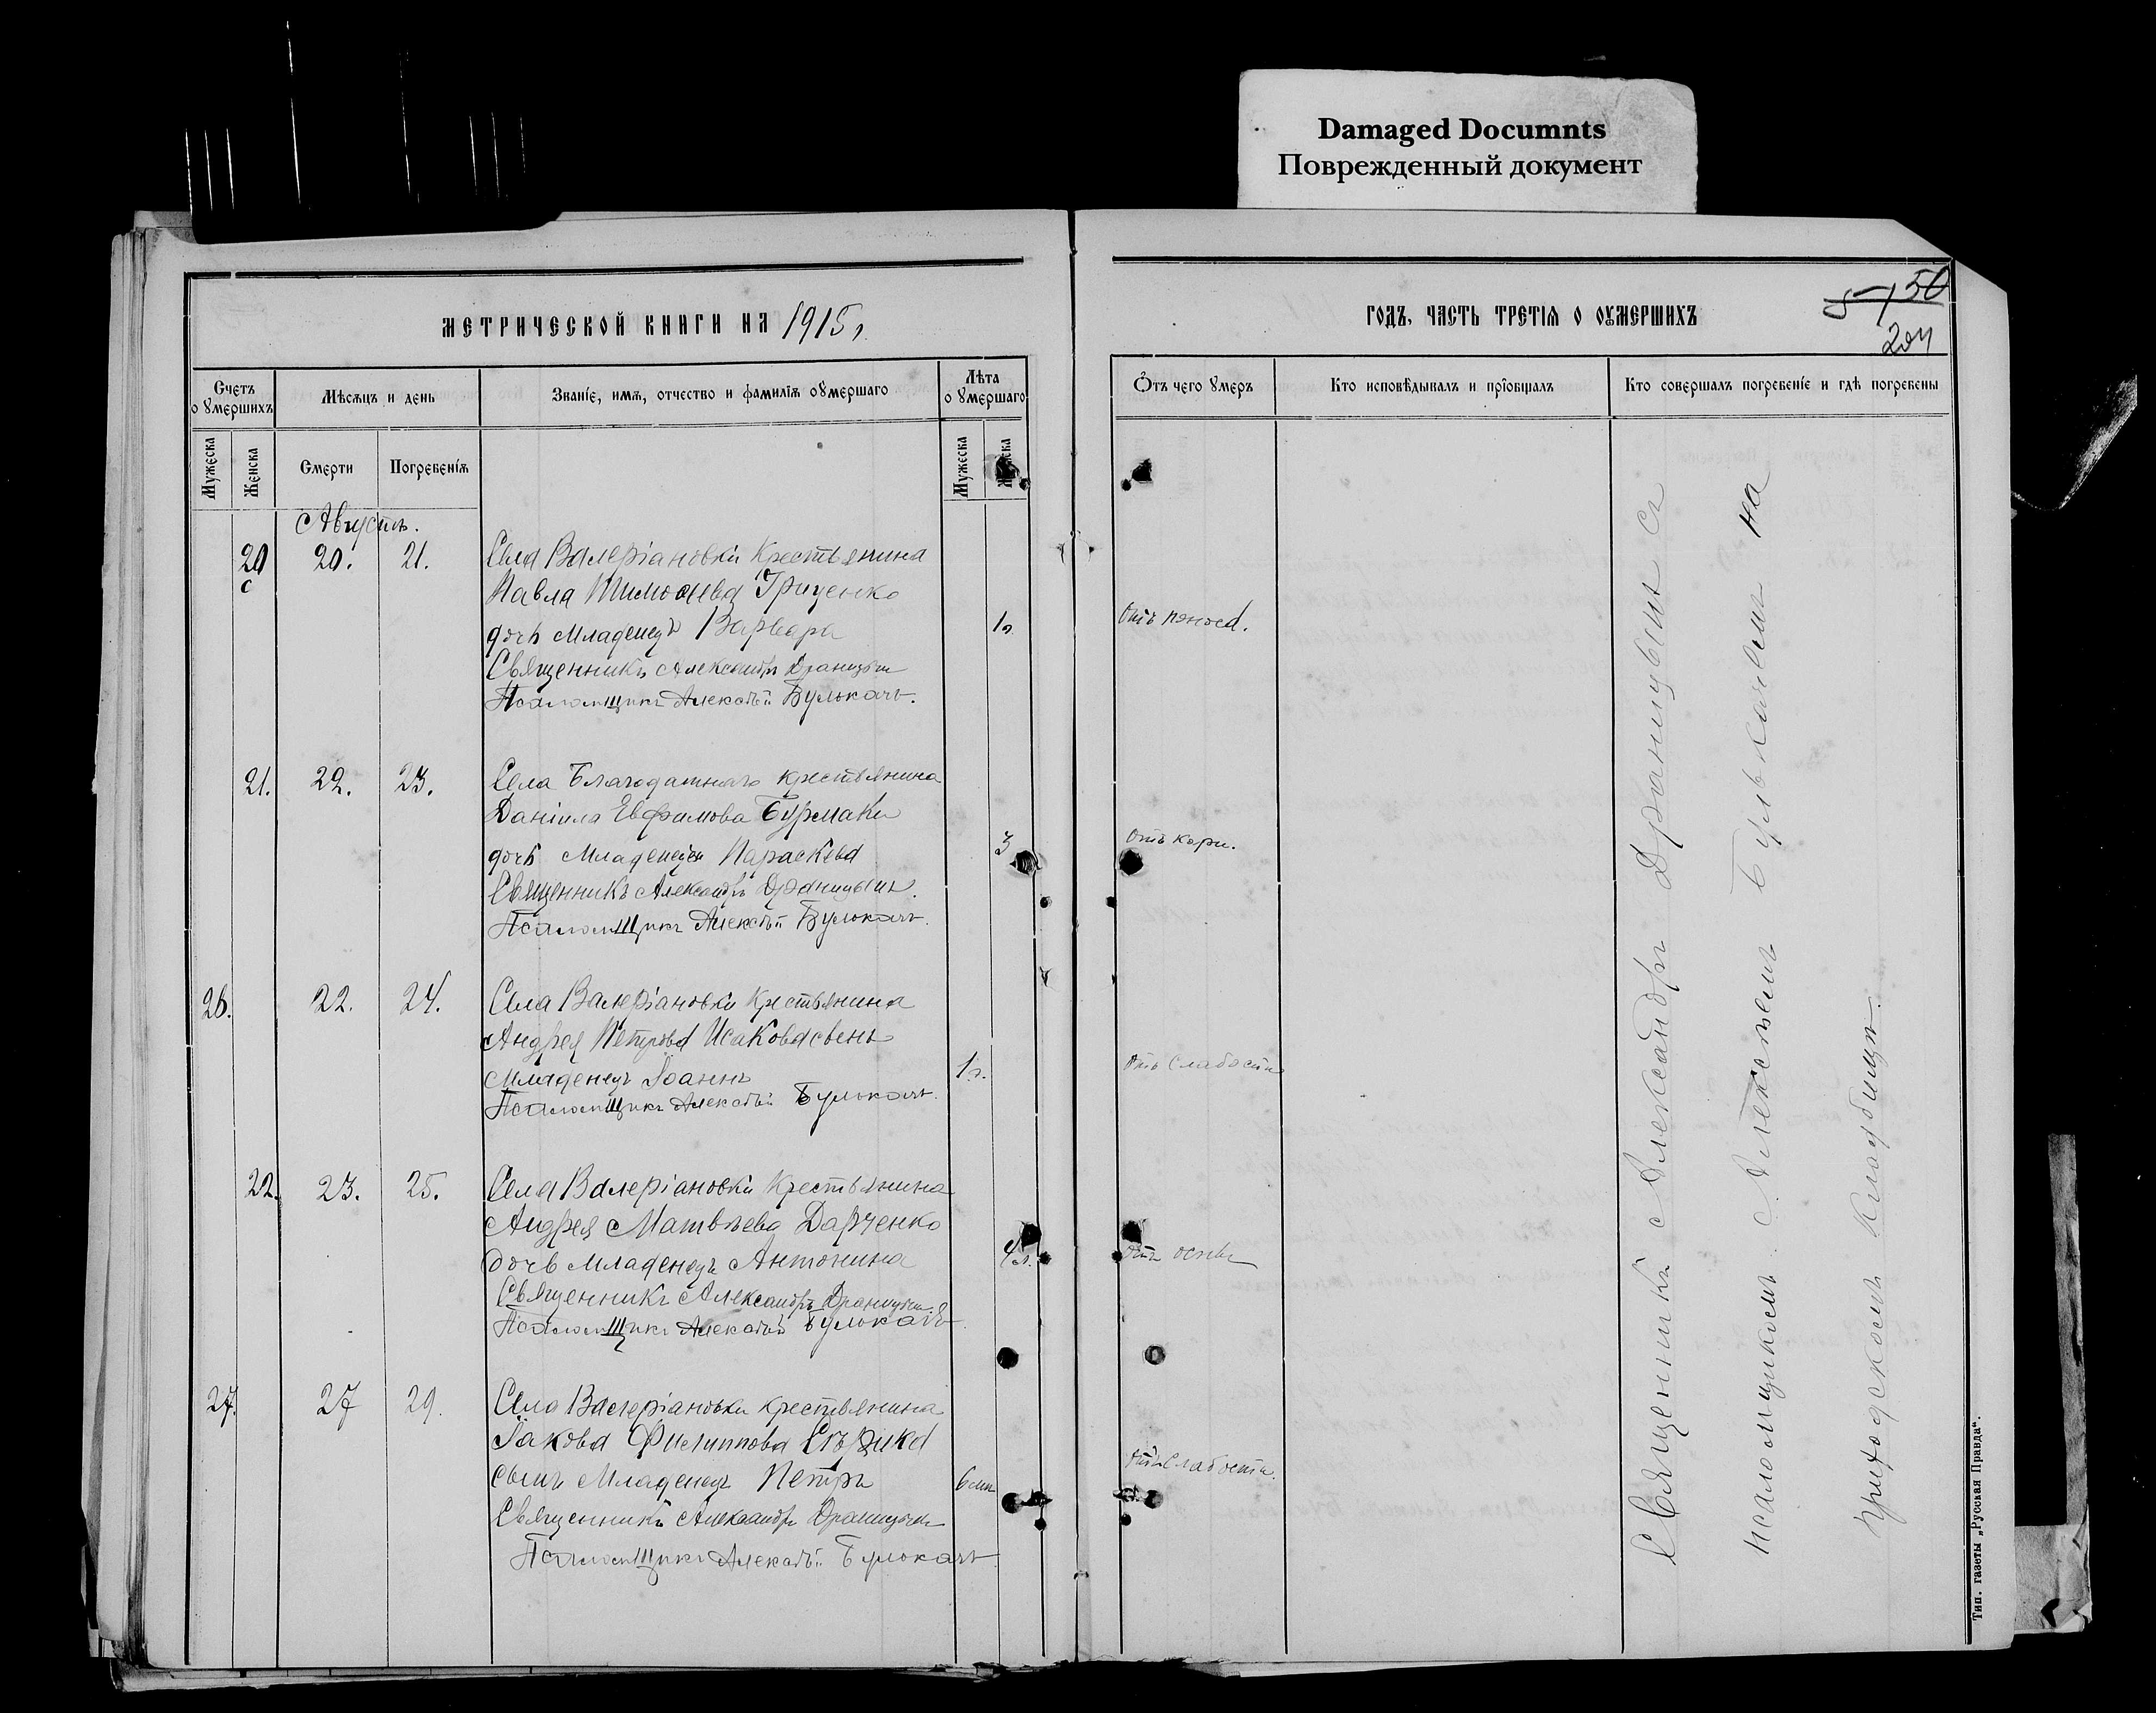 Damaged Documnts
Поврежденный документ
МЕТРИЧЕСКОЙ КНИГИ НА 1915 г.
ГОДЪ, ЧАСТЬ ТРЕТІЯ О ОУМЕРШИХЪ
50
204
Счетъ оумершихъ
Мѣсяцъ и день
Званіе, имя, отчество и фамилія оумершаго
Лѣта оумершаго
Отъ чего умеръ
Кто исповѣдывалъ и пріобщалъ
Кто совершалъ погребеніе и гдѣ погребены
Мужеска
Женска
Смерти
Погребенія
Мужеска
Августъ.
20 20. 21. Села Валеріановки крестьянина
Павла Тимофеева Гриценко
дочь младенецъ Варвара 1 г. Отъ поноса.
Священникъ Александръ Драницынъ
Псаломщикъ Алексѣй Булюкачъ.
21. 22. 23. Села Благодатнаго крестьянина
Даніила Евфимова Бурмаки
дочь младенецъ Параскева 3 Отъ кори.
Священникъ Александръ Драницынъ.
Псаломщикъ Алексѣй Булюкачъ.
26. 22. 24. Села Валеріановки крестьянина
Андрея Петрова Исакова сынъ
младенецъ Іоаннъ 1 г. Отъ слабости
Псаломщикъ Алексѣй Булюкачъ.
22. 23. 25. Села Валеріановки крестьянина
Андрея Матвѣева Дарченко
дочь младенецъ Антонина 4 г. Отъ оспы
Священникъ Александръ Драницынъ
Псаломщикъ Алексѣй Булюкачъ
27. 27 29. Села Валеріановки крестьянина
Іакова Филиппова
сынъ младенецъ Петръ 6 мѣс. Отъ слабости.
Священникъ Александръ Драницынъ
Псаломщикъ Алексѣй Булюкачъ
Священникъ Александръ Драницынъ съ
псаломщикомъ Алексѣемъ Булюкачемъ на
приходскомъ кладбищѣ.
Тип. газеты „Русская Правда".